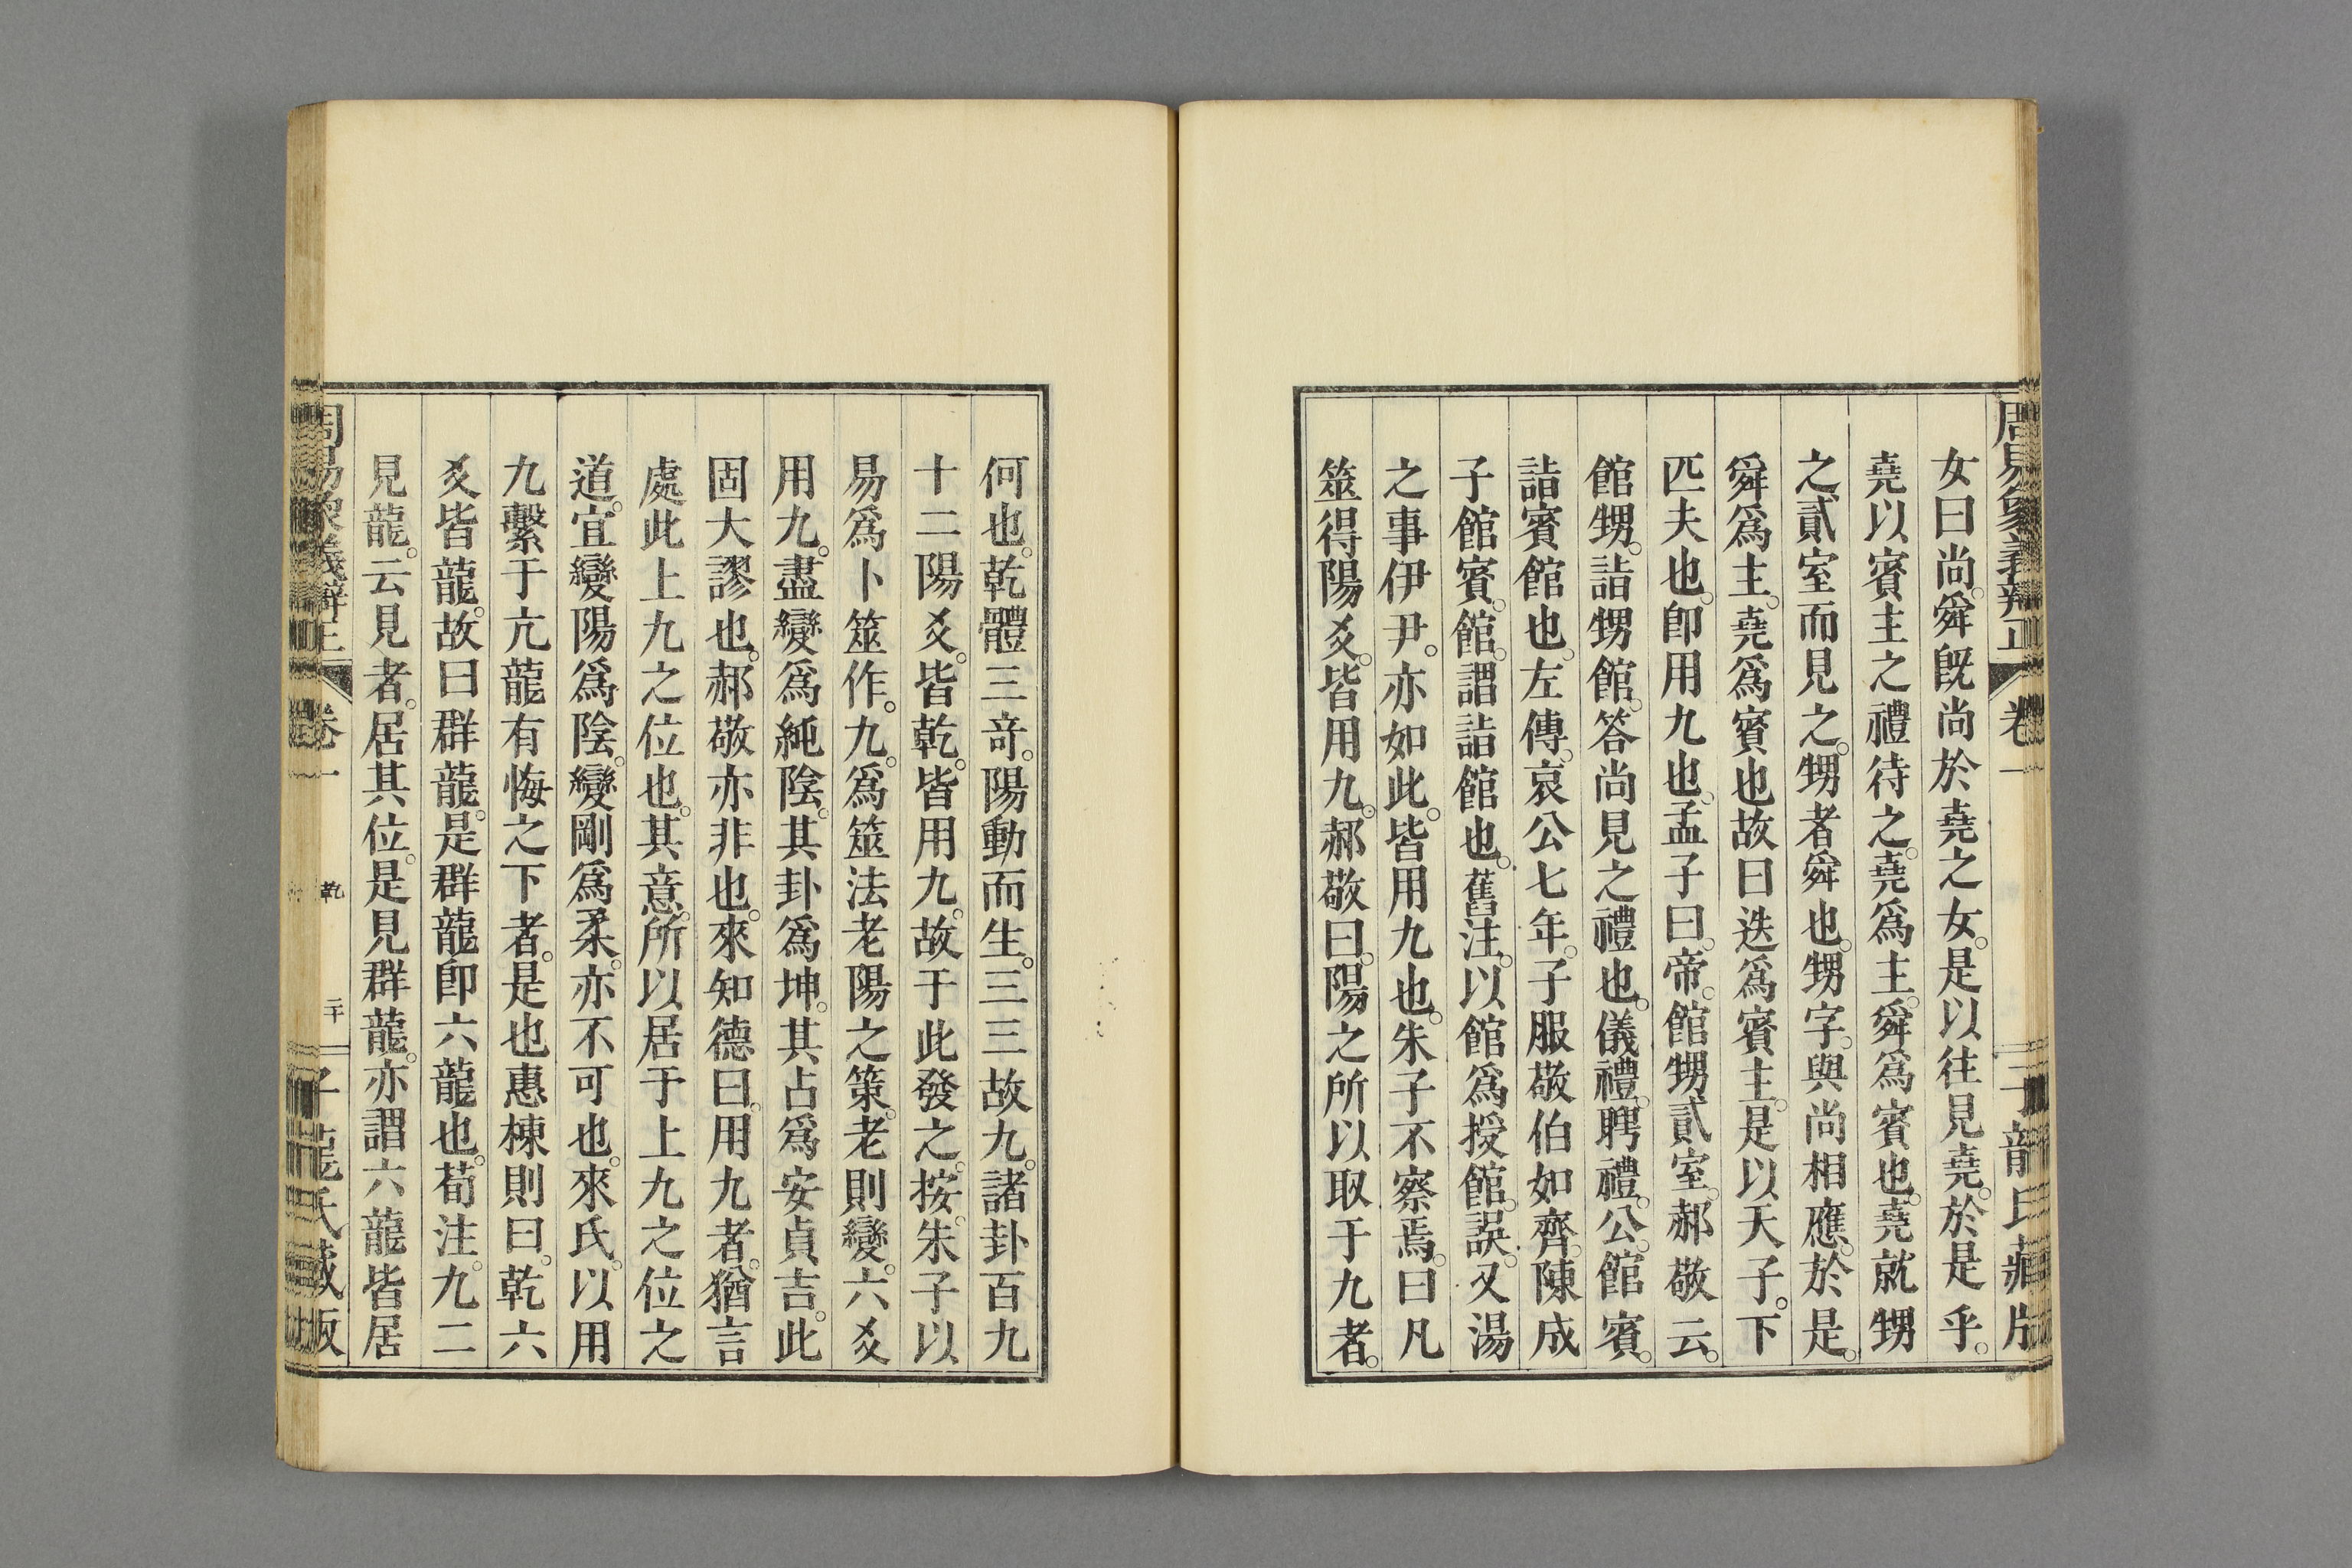 周易象義辯正 卷一 子龍氏藏版
女曰尚。舜旣尚於堯之女。是以往見堯。於是乎。
堯以賓主之禮待之。堯爲主。舜爲賓也。堯就甥
之貳室而見之。甥者舜也。甥字。與尚相應。於是。
舜爲主。堯爲賓也故曰迭爲賓主。是以天子。下
匹夫也。卽用九也。孟子曰。帝。館甥貳室。郝敬云。
館甥。詣甥館。答尚見之禮也。儀禮。聘禮。公。館賓。
詣賓館也。左傳。哀公七年。子服敬伯如齊。陳成
子館賓。館。謂詣館也。舊注。以館爲授館。誤。又湯
之事伊尹。亦如此。皆用九也。朱子不察焉。曰凡
筮得陽爻。皆用九。郝敬曰。陽之所以取于九者。
何也。乾體三奇。陽動而生。三三故九。諸卦百九
十二陽爻。皆乾。皆用九。故于此發之。按。朱子以
易爲卜筮作。九。爲筮法老陽之策。老則變。六爻
用九。盡變爲純陰。其卦爲坤。其占爲安貞吉。此
固大謬也。郝敬亦非也。來知德曰。用九者。猶言
處此上九之位也。其意。所以居于上九之位之
道。宜變陽爲陰。變剛爲柔。亦不可也。來氏。以用
九繫于亢龍有悔之下者。是也惠棟則曰。乾六
爻皆龍。故曰群龍。是群龍卽六龍也。荀注。九二
見龍。云見者。居其位。是見群龍。亦謂六龍皆居
周易象義辯正 卷一 乾 二十 子龍氏藏版